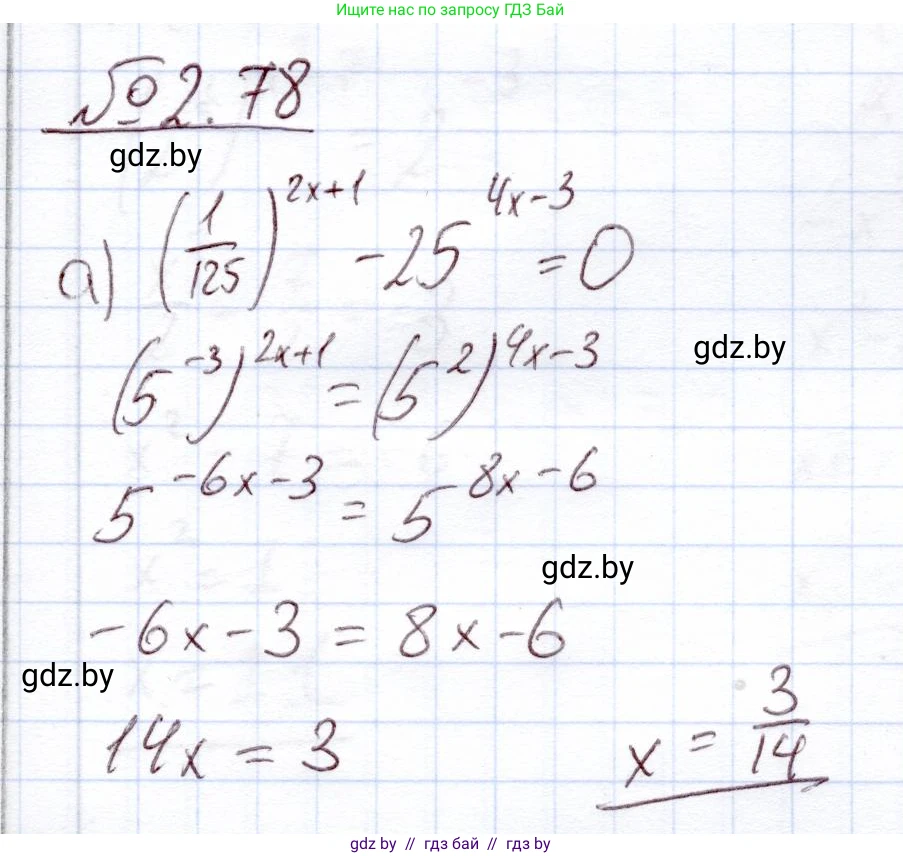 Ищите нас по запросу ГДЗ Бай
№ 2.78
gdz.by
а) (1/125)^(2x+1) - 25^(4x-3) = 0
(5^(-3))^(2x+1) = (5^2)^(4x-3)
gdz.by
5^(-6x-3) = 5^(8x-6)
gdz.by
-6x-3 = 8x-6
gdz.by
14x = 3
x = 3/14
gdz.by // гдз бай // gdz.by